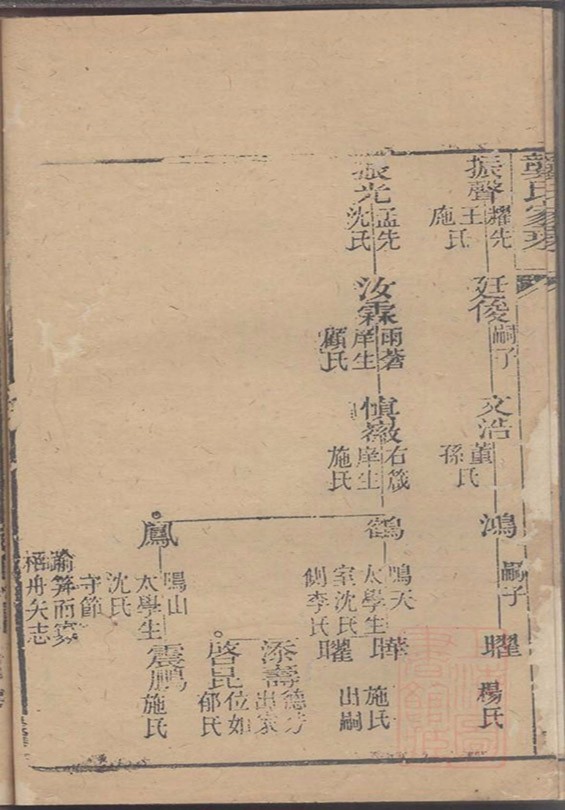 龔氏家
振聲
耀先
王
施氏
廷俊
嗣子
文浩
董
孫氏
鴻
嗣子
曜
楊氏
振光
孟先
沈氏
汝霖
雨蒼
庠生
顧氏
慎徽
右箴
庠生
施氏
鶴
鳴天
太學生
室沈氏
側李氏
曄
施氏
曜
出嗣
添壽
德芳
出家
啓昆
位如
郁氏
鳳
鳴山
太學生
沈氏
守節
踰笄而寡
栢舟矢志
震鵬
施氏